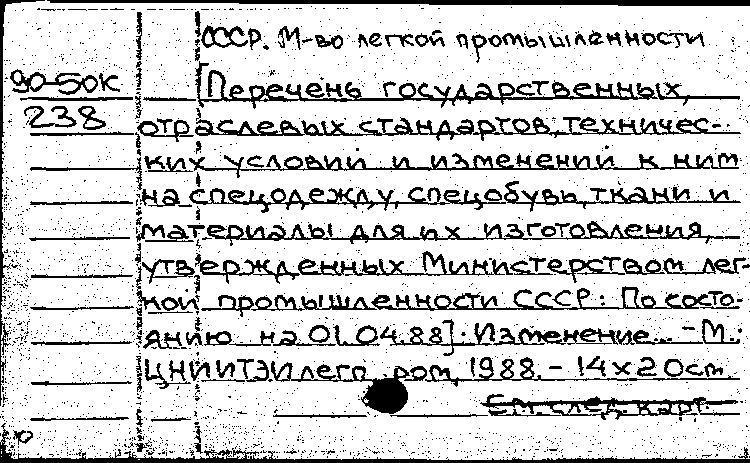 СССР. М-во легкой промышленности
90-50к
[Перечень государственных,
238
отраслевых стандартов, техничес-
ких условий и изменений к ним
на спецодежду, спецобувь, ткани и
материалы для их изготовления,
утвержденных Министерством лег-
кой промышленности СССР: По состо-
янию на 01.04.88]: Изменение... - М.:
ЦНИИТЭИлегпром, 1988. - 14 x 20 см.
См. след. карт.